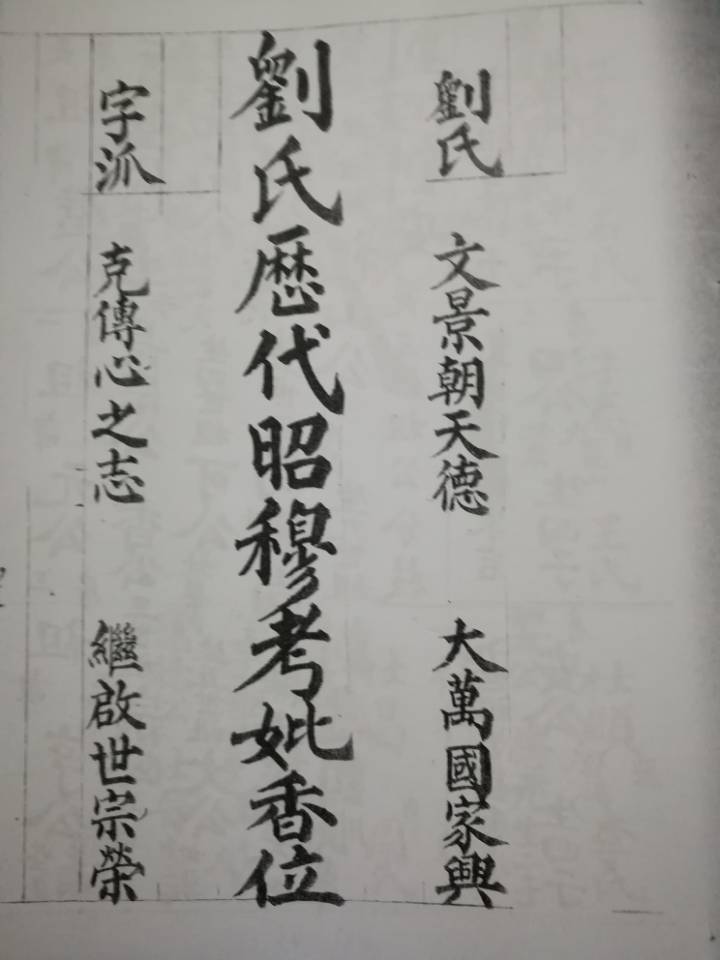 劉氏 文景朝天德 大萬國家興
劉氏歷代昭穆考妣香位
字派 克傳心之志 繼啟世宗榮